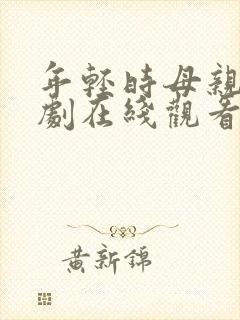 年轻时母親
劇在綫觀看
黄新錦